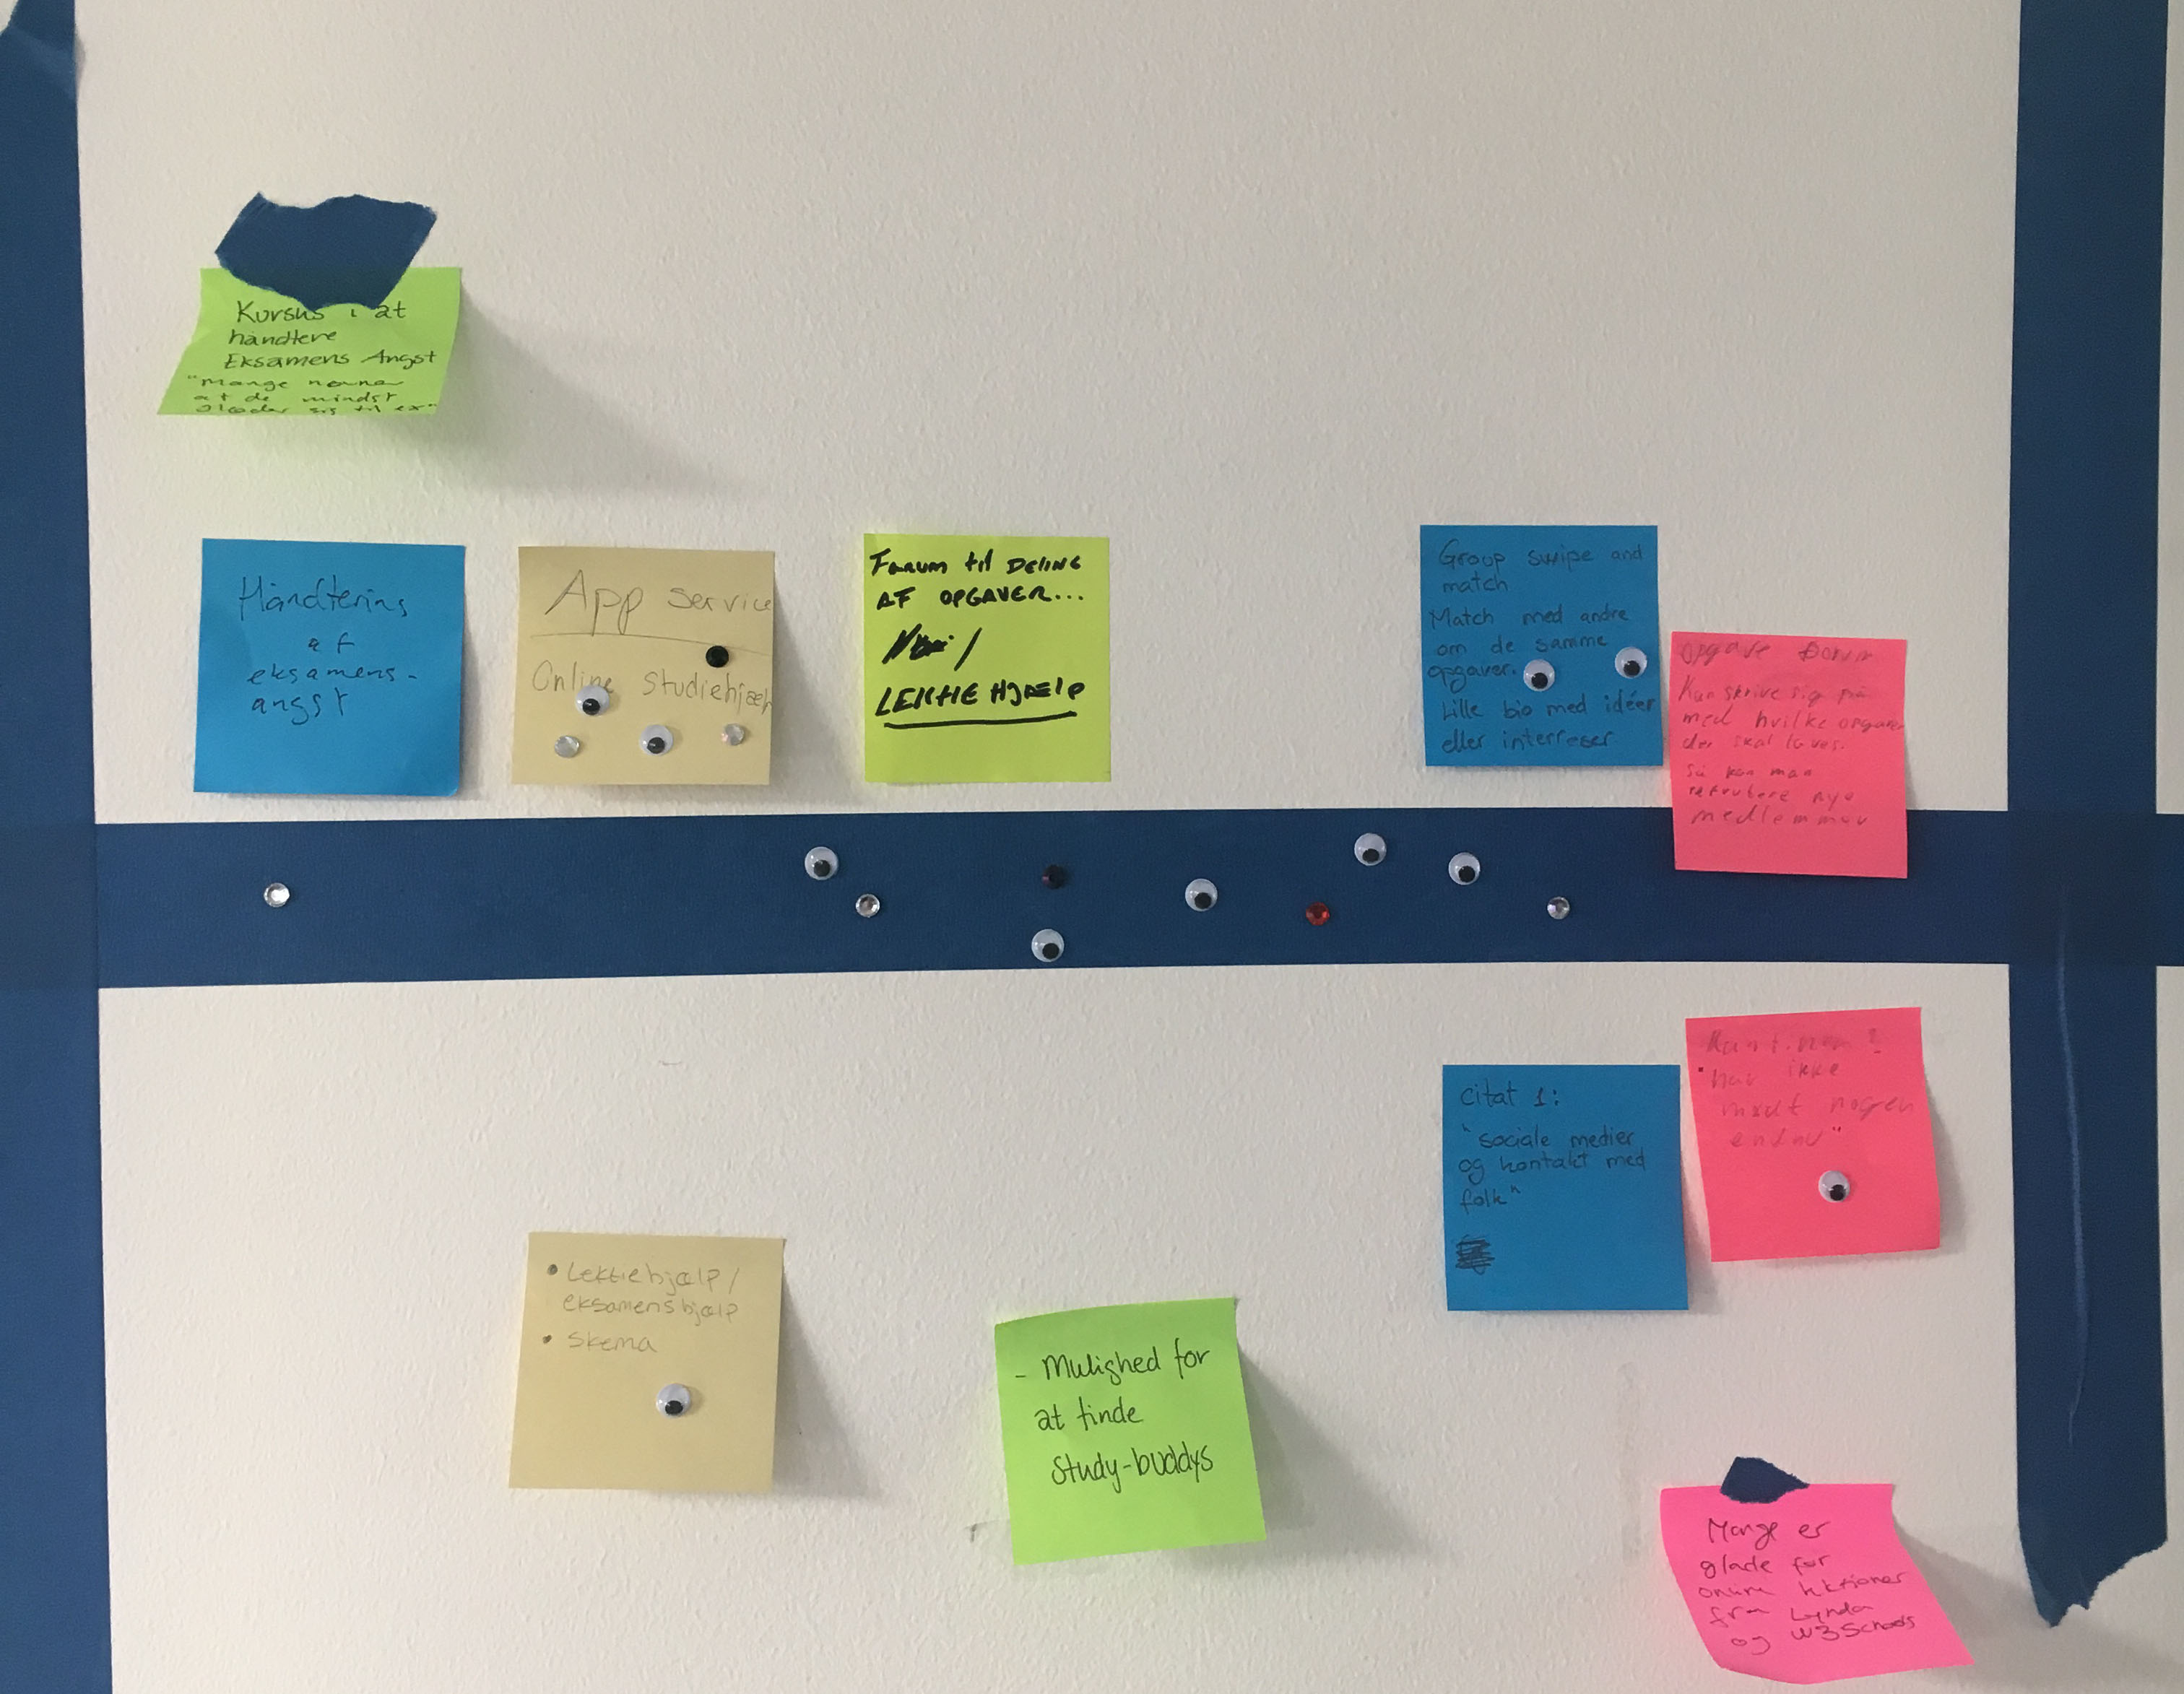 Kursus i at
håndtere
Eksamens Angst
"Mange
at de mindst
glæder sig til ex"
Håndtering
af
eksamens-
angst
App service
Online studiehjælp
Forum til DELING
AF OPGAVER...
/
LEKTIE HJÆLP
Group swipe and
match
Match med andre
om de samme
opgaver.
Lille bio med idéer
eller interreser
opgave Forum
Kan skrive sig på
med hvilke opgaver
der skal laves.
så kan man
rekrutere nye
medlemmer
"har ikke
mødt nogen
endnu"
citat 1:
"sociale medier
og kontakt med
folk"
• Lektiehjælp/
eksamenshjælp
• Skema
- Mulighed for
at finde
study-buddys
Mange er
glade for
lektioner
fra Lynda
og W3Schools